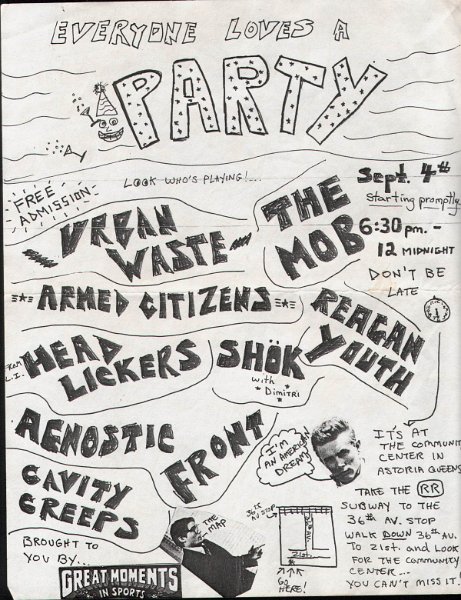 EVERYONE LOVES A
PARTY
LOOK WHO'S PLAYING!...
FREE
ADMISSION
Sept. 4th
Starting promptly
6:30 pm. -
12 MIDNIGHT
DON'T BE
LATE
URBAN
WASTE
THE
MOB
ARMED CITIZENS
REAGAN
YOUTH
FROM
L.I.
HEAD
LICKERS
SHÖK
with
DIMITRI
AGNOSTIC
FRONT
CAVITY
CREEPS
I'M
AN AMERICAN
DREAM!
IT'S AT
THE COMMUNITY
CENTER IN
ASTORIA QUEENS
TAKE THE RR
SUBWAY TO THE
36th AV. STOP
WALK DOWN 36th AV.
TO 21st. and LOOK
FOR THE COMMUNITY
CENTER...
YOU CAN'T MISS IT!
THE MAP
36th
AV. STOP
21st.
GO
HERE!
BROUGHT TO
YOU BY...
GREAT MOMENTS
IN SPORTS